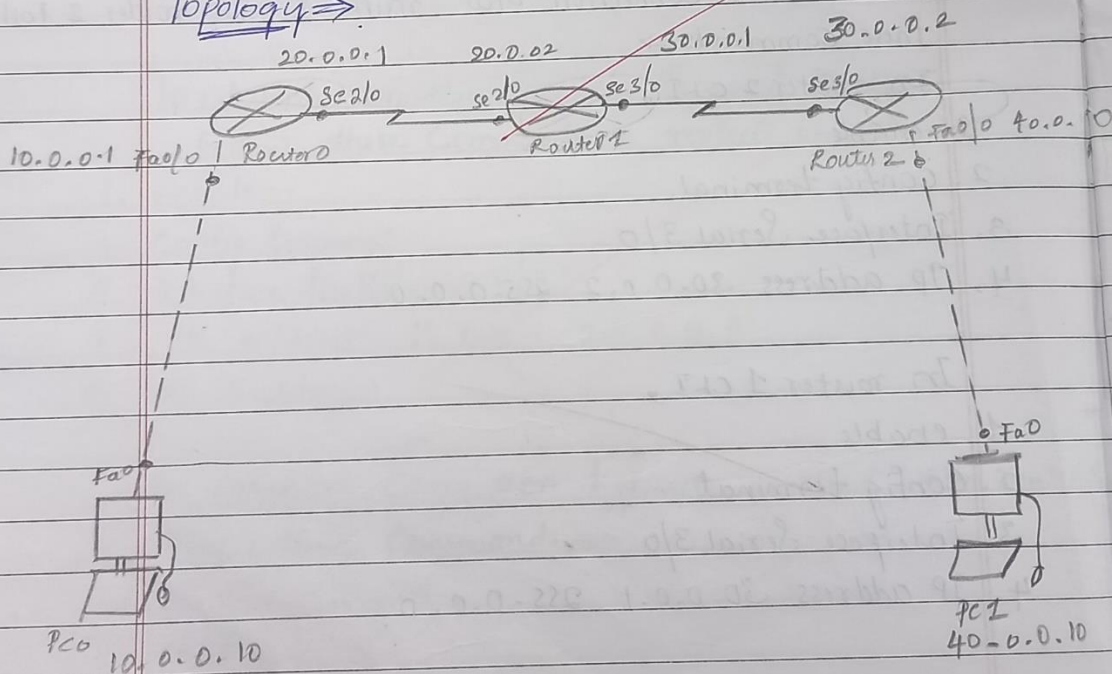 Topology ⇒
20.0.0.1 20.0.02 30.0.0.1 30.0.0.2
se2/0 se2/0 se3/0 se3/0
10.0.0.1 Fa0/0 Router0 Router1 Router 2 Fa0/0 40.0.
Fa0 Fa0
PC0 PC1
10.0.0.10 40-0.0.10